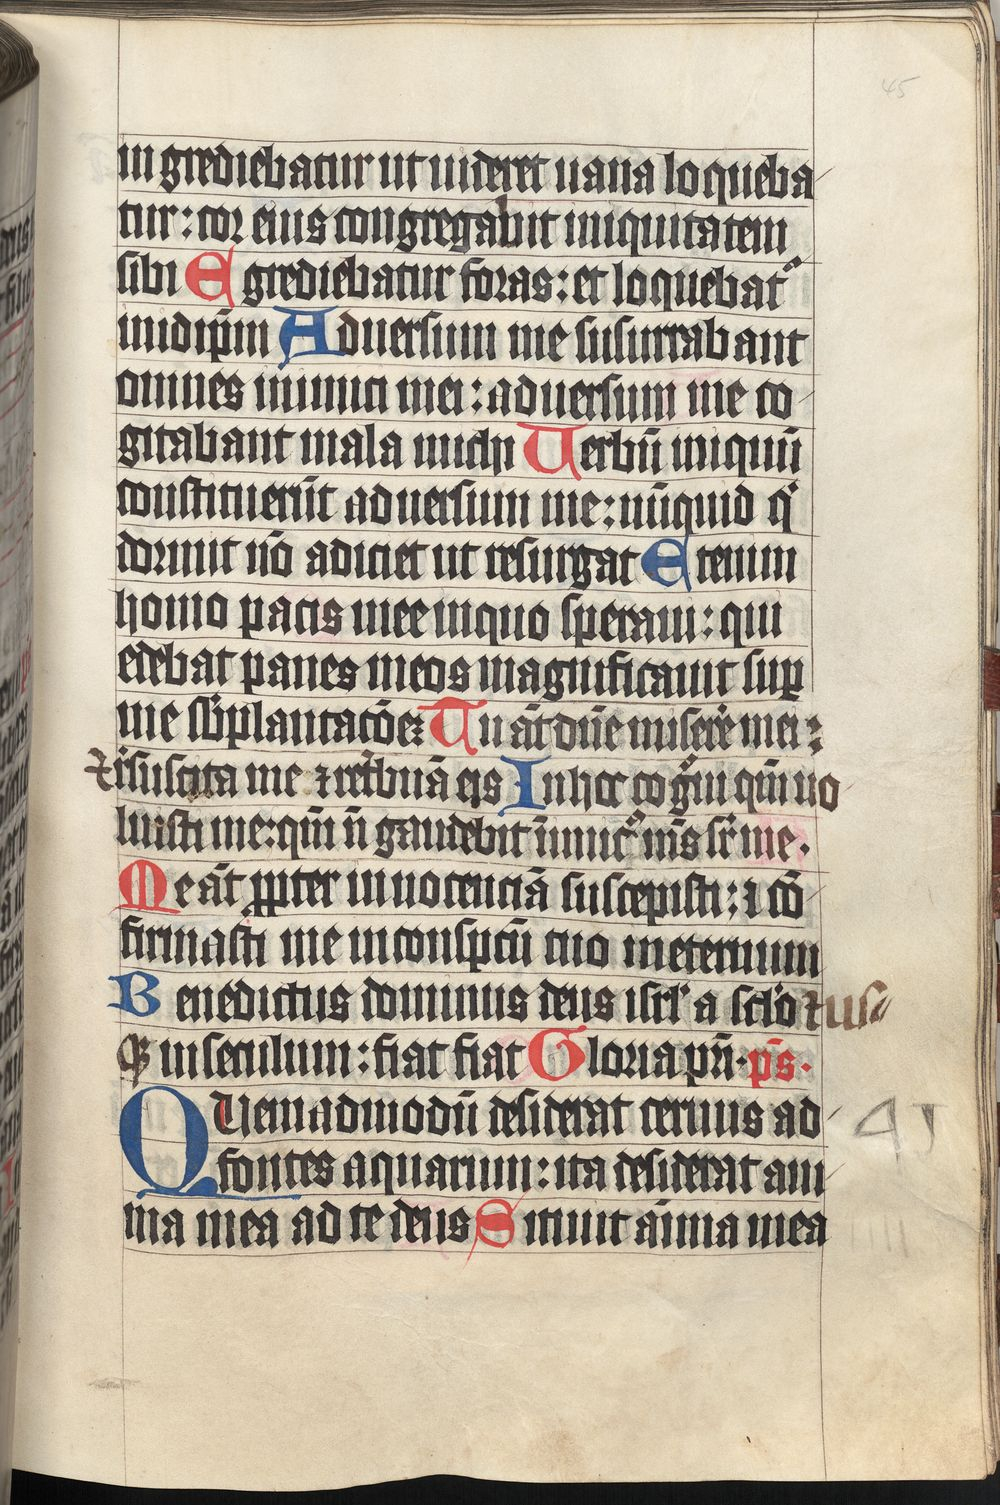 45
in grediebatur ut uideret uana loqueba
tur: cor eius congregabit iniquitatem
sibi Egrediebatur foras: et loquebat᷑
inidip̄m Aduersum me susurrabant
omnes inimici mei: aduersum me co
gitabant mala michi Uerbū iniquū
constituerūt aduersum me: nūquid qͥ
dormit nō adiciet ut resurgat Etenim
homo pacis mee inquo speraui: qui
edebat panes meos magnificauit suꝑ
me sb̄plantatōeꝫ Tu aūt dn̄e miserē mei:
⁊ resuscita me ⁊ ret̄buā eis Inhoc cogͦui qm̄ uo
luisti me: qm̄ n̄ gaudebit īimicꝰ m̄s sr̄ me.
Me aūt ꝓpter innocenciā suscepisti: ⁊ cō
firmasti me inconspc̄u tuo ineternum
Benedictus dominus deus isrl̓ a scl̓o ⁊ usq̄
inseculum: fiat fiat Gloria pr̄i. ps̄.
QUemadmodū desiderat ceruus ad
fontes aquarum: ita desiderat ani
ma mea ad te deus Sitiuit aīma mea